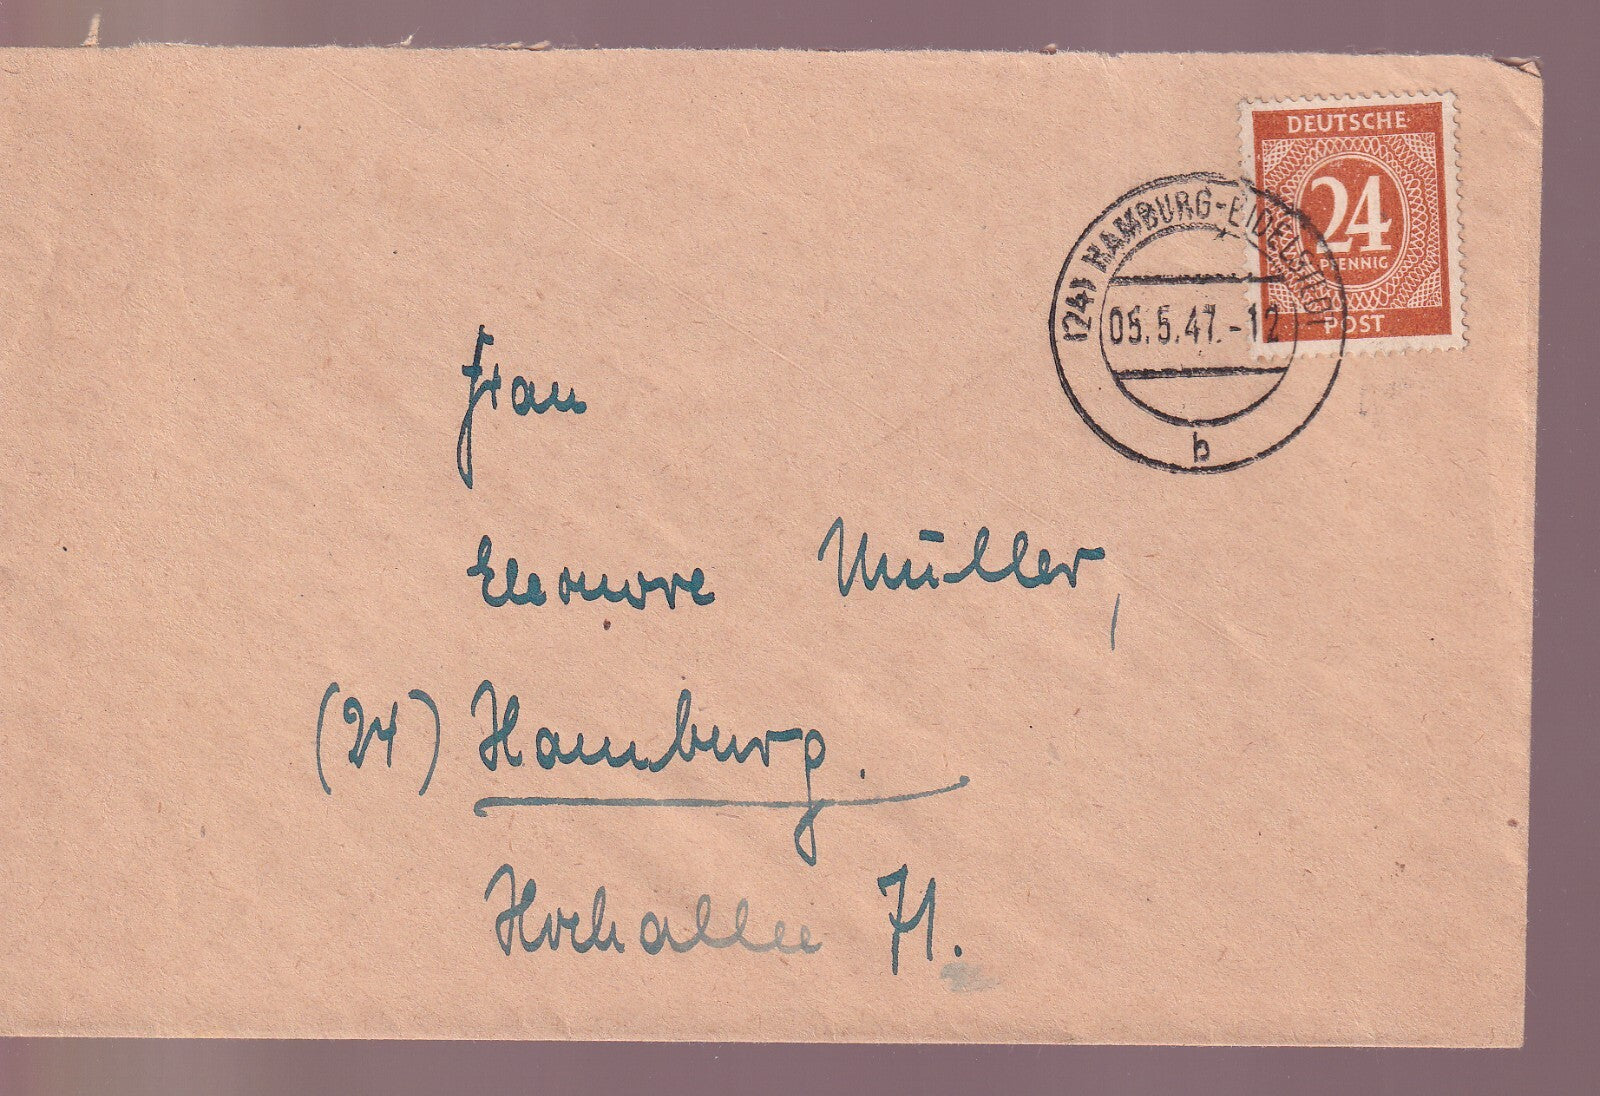 DEUTSCHE
24
PFENNIG
POST
(24) HAMBURG-EIDELSTEDT
05.5.47.-12
b
Frau
Eleonore Müller,
(24) Hamburg.
Hochallee 71.